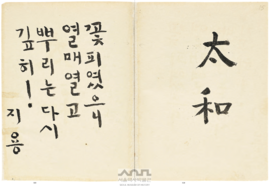 太和
꽃피였으니
열매열고
뿌리는다시
깊허!
지용